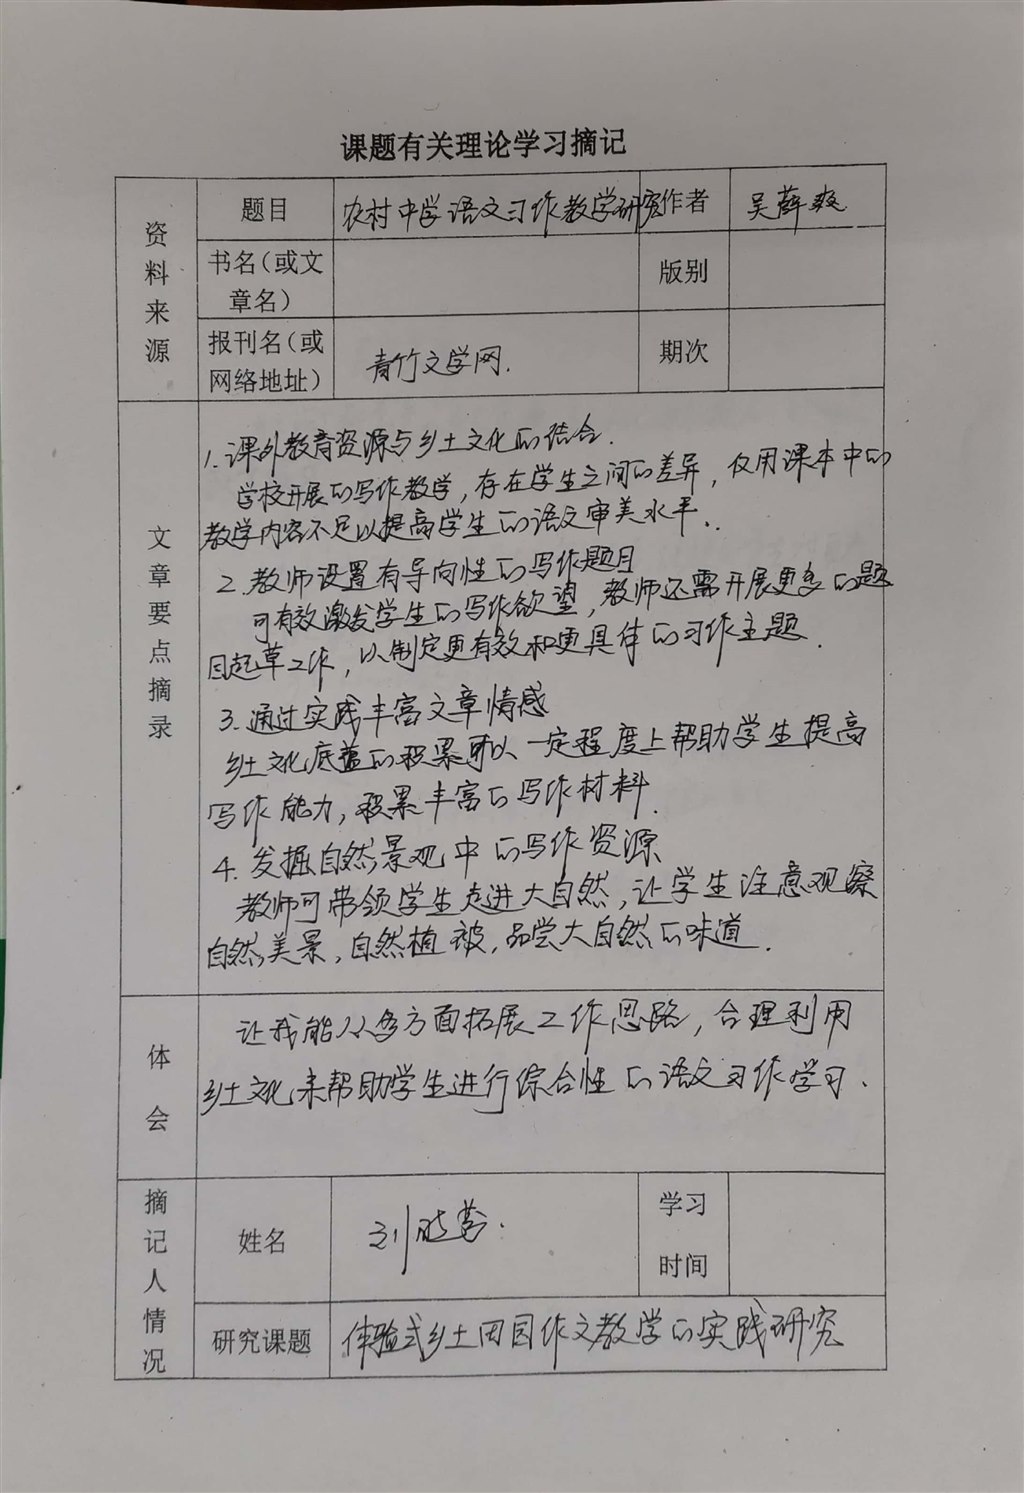 课题有关理论学习摘记
资料来源
题目
农村中学语文习作教学研究
作者
吴薛爽
书名（或文
章名）
版别
报刊名（或
网络地址）
青竹文学网.
期次
文章要点摘录
1.课外教育资源与乡土文化的结合.
学校开展的写作教学，存在学生之间的差异，仅用课本中的
教学内容不足以提高学生的语文审美水平..
2.教师设置有导向性的写作题目
可有效激发学生的写作欲望，教师还需开展更多的题
目起草工作，以制定更有效和更具体的习作主题.
3.通过实践丰富文章情感
乡土文化底蕴的积累可以一定程度上帮助学生提高
写作能力，积累丰富的写作材料.
4.发掘自然景观中的写作资源
教师可带领学生走进大自然，让学生注意观察
自然美景，自然植被，品尝大自然的味道.
体会
让我能从多方面拓展工作思路，合理利用
乡土文化来帮助学生进行综合性的语文习作学习.
摘记人情况
姓名
刘
学习
时间
研究课题
体验式乡土田园作文教学的实践研究